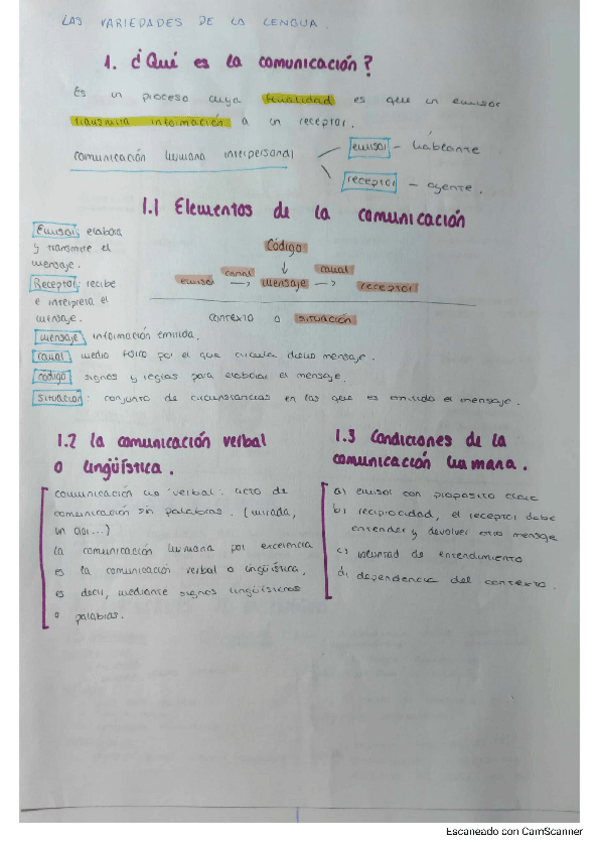 LAS VARIEDADES DE LA LENGUA.
1. ¿Qué es la comunicación?
Es un proceso cuya finalidad es que un emisor
transmita información a un receptor.
comunicación humana interpersonal
emisor - hablante
receptor - oyente.
1.1 Elementos de la comunicación
Emisor: elabora
y transmite el
mensaje.
Receptor: recibe
e interpreta el
mensaje.
Código
emisor canal mensaje canal receptor
contexto o situación
mensaje información emitida.
canal medio físico por el que circula dicho mensaje.
código signos y reglas para elaborar el mensaje.
situación: conjunto de circunstancias en las que es emitido el mensaje.
1.2 la comunicación verbal
o lingüística.
comunicación no verbal: acto de
comunicación sin palabras. (mirada,
un adi...)
la comunicación humana por excelencia
es la comunicación verbal o lingüística,
es decir, mediante signos lingüísticos
o palabras.
1.3 Condiciones de la
comunicación humana.
a) emisor con propósito clave
b) reciprocidad, el receptor debe
entender y devolver otro mensaje
c) voluntad de entendimiento
d) dependencia del contexto.
Escaneado con CamScanner